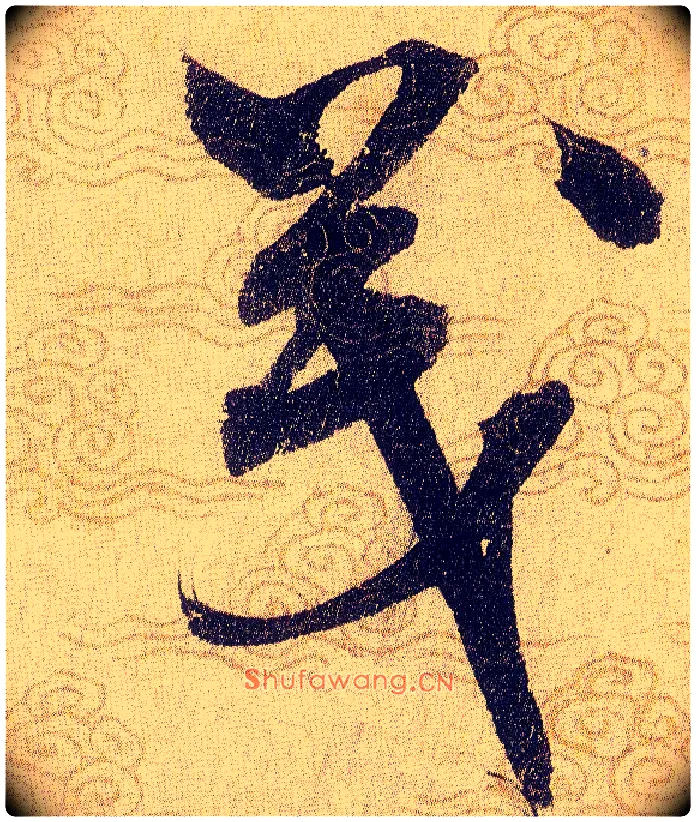 義
Shufawang.CN